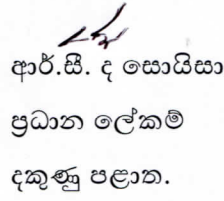 ආර්.සී. ද සොයිසා
ප්‍රධාන ලේකම්
දකුණු පළාත.